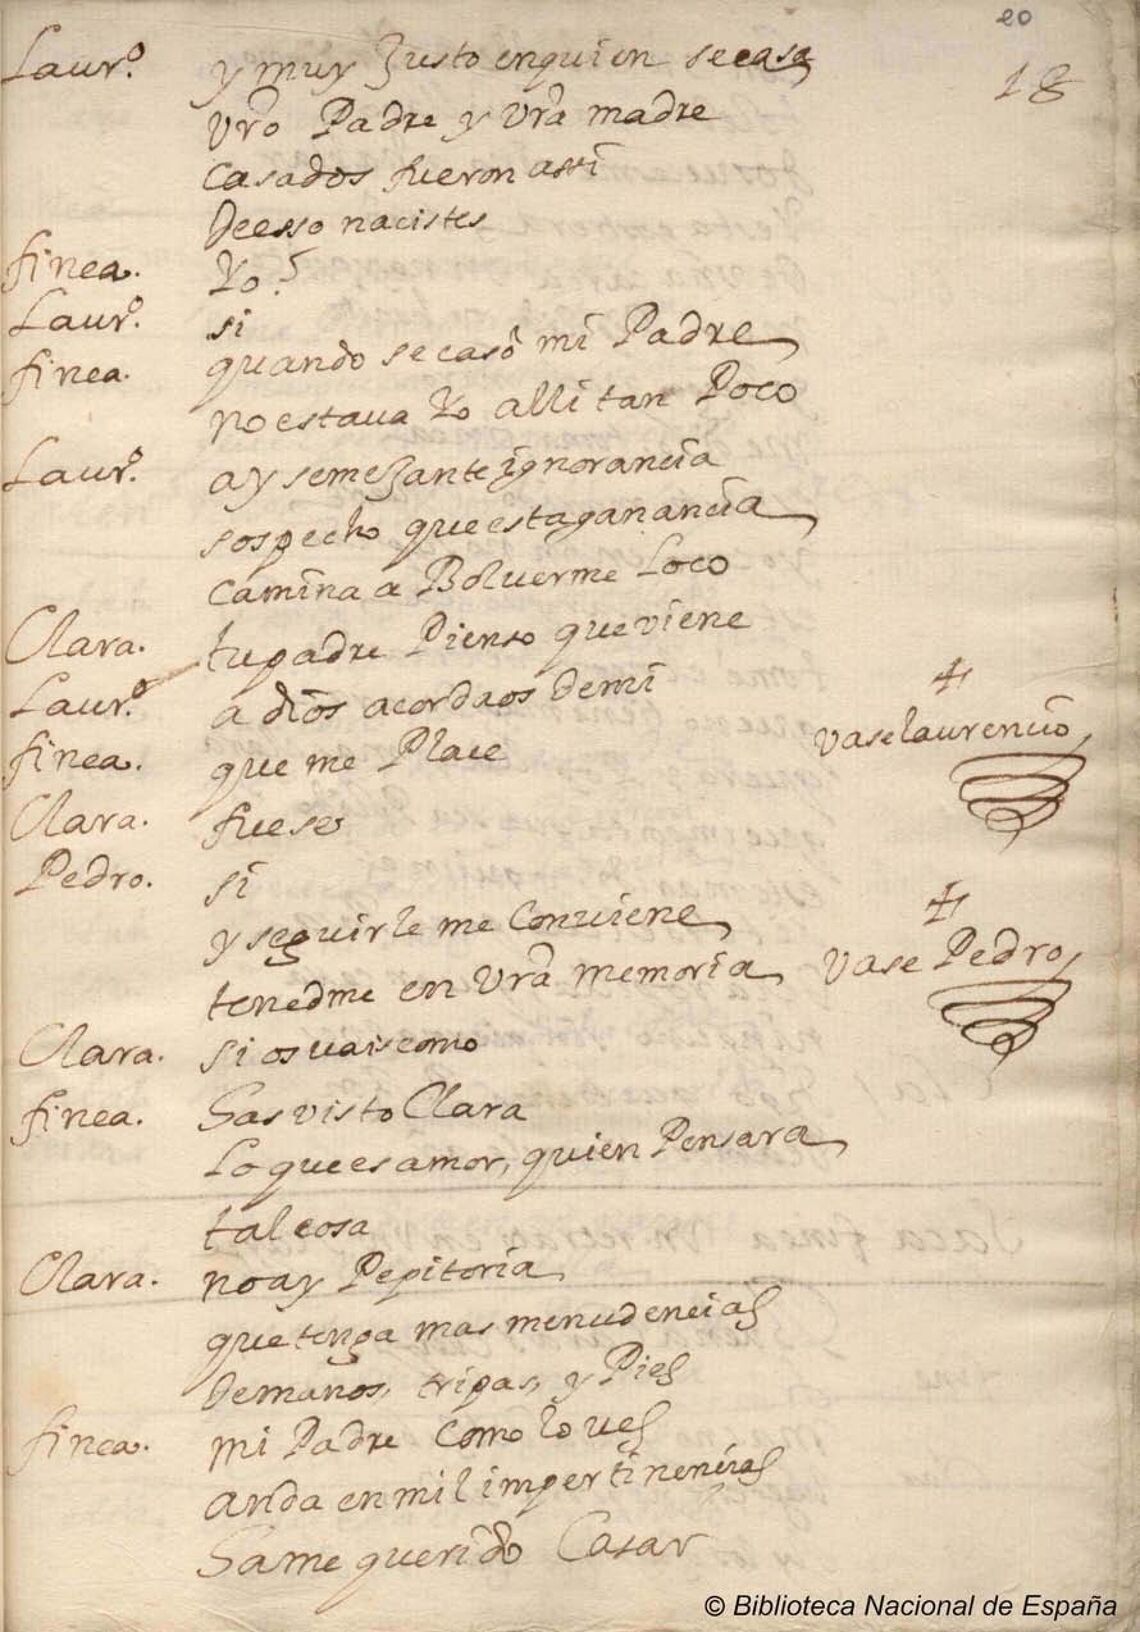 20
18
Laurº. y muy Justo en quien se casa
Vrõ Padre y Vrã madre
casados fueron assi
de esso nacistes
finea. Yo?
Laurº. si
finea. quando se casó mi Padre
no estaua Yo alli tan Poco
Laurº. ay semejante ignorancia
sospecho que esta ganancia
camina a Boluerme Loco
Clara. tu padre Pienso que viene
Laurº. a dios acordaos de mi
vase laurencio
finea. que me Place
Clara. fuese
Pedro. si
y seguirle me Conuiene
tenedme en Vrã memoria
vase Pedro
Clara. si os vais como
finea. Has visto Clara
Lo que es amor, quien Pensara
tal cosa
Clara. no ay Pepitoria
que tenga mas menudencias
de manos, tripas, y Pies
finea. mi Padre como lo ues
anda en mil impertinencias
Hame querido Casar
© Biblioteca Nacional de España